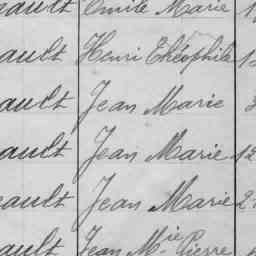 ault Emile Marie 1
ault Henri Théophile 1
ault Jean Marie
ault Jean Marie 12
ault Jean Marie 2
ault Jean Mie Pierre